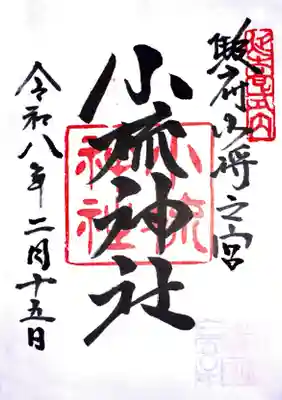 延喜式内
駿府少将之宮
小梳神社
小梳神社
令和八年二月十五日